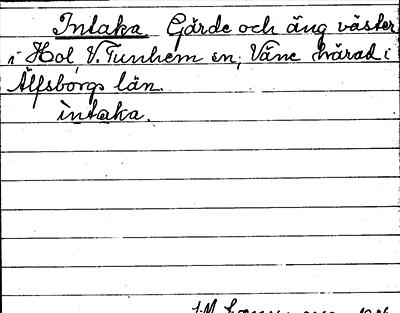 Intaka Gärde och äng väster
i Hol V. Tunhem sn; Väne härad i
Älfsborgs län.
intaka.